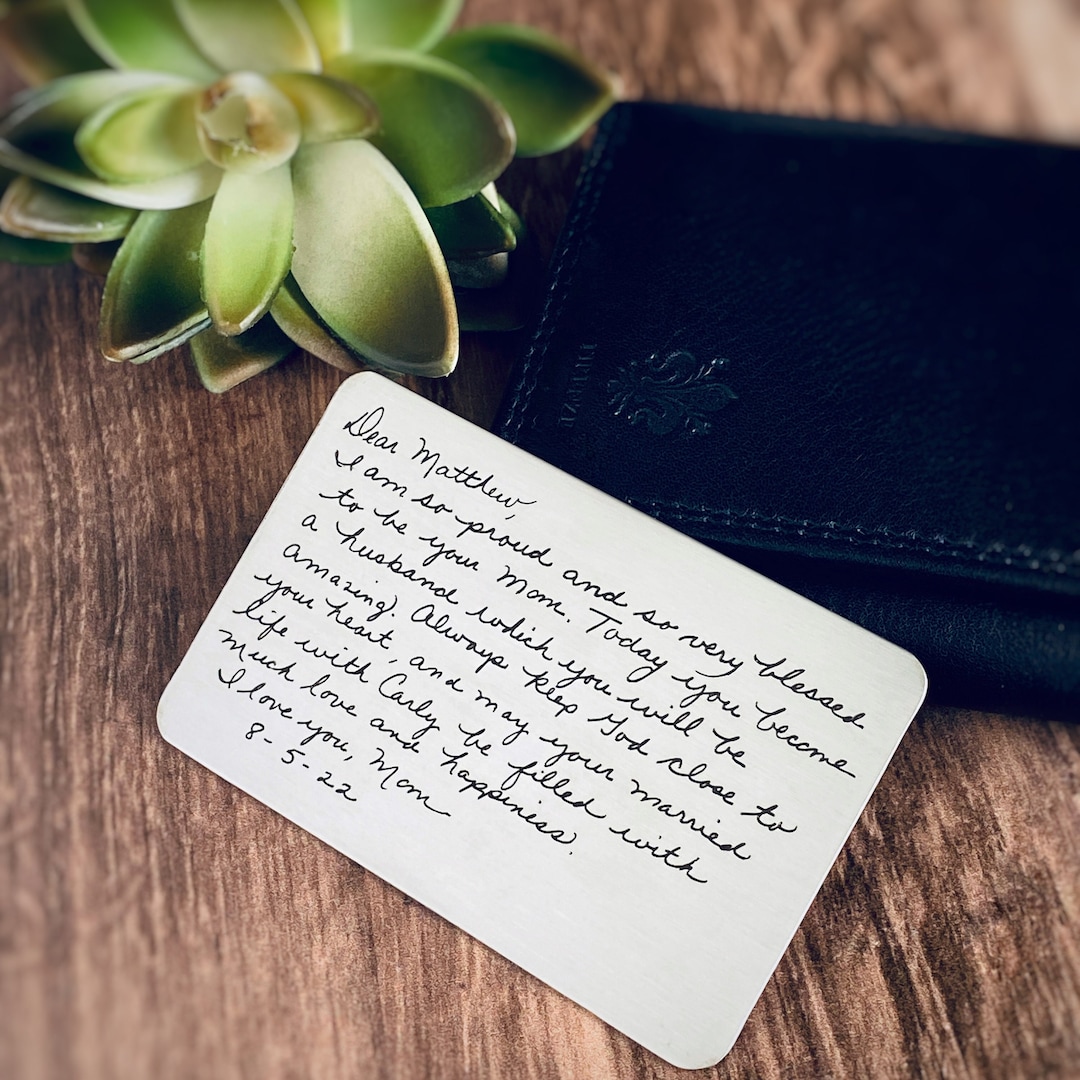 Dear Matthew,
I am so proud and so very blessed
to be your Mom. Today you become
a husband which you will be
amazing). Always keep God close to
your heart, and may your married
life with Carly be filled with
much love and happiness.
I love you, Mom
8-5-22